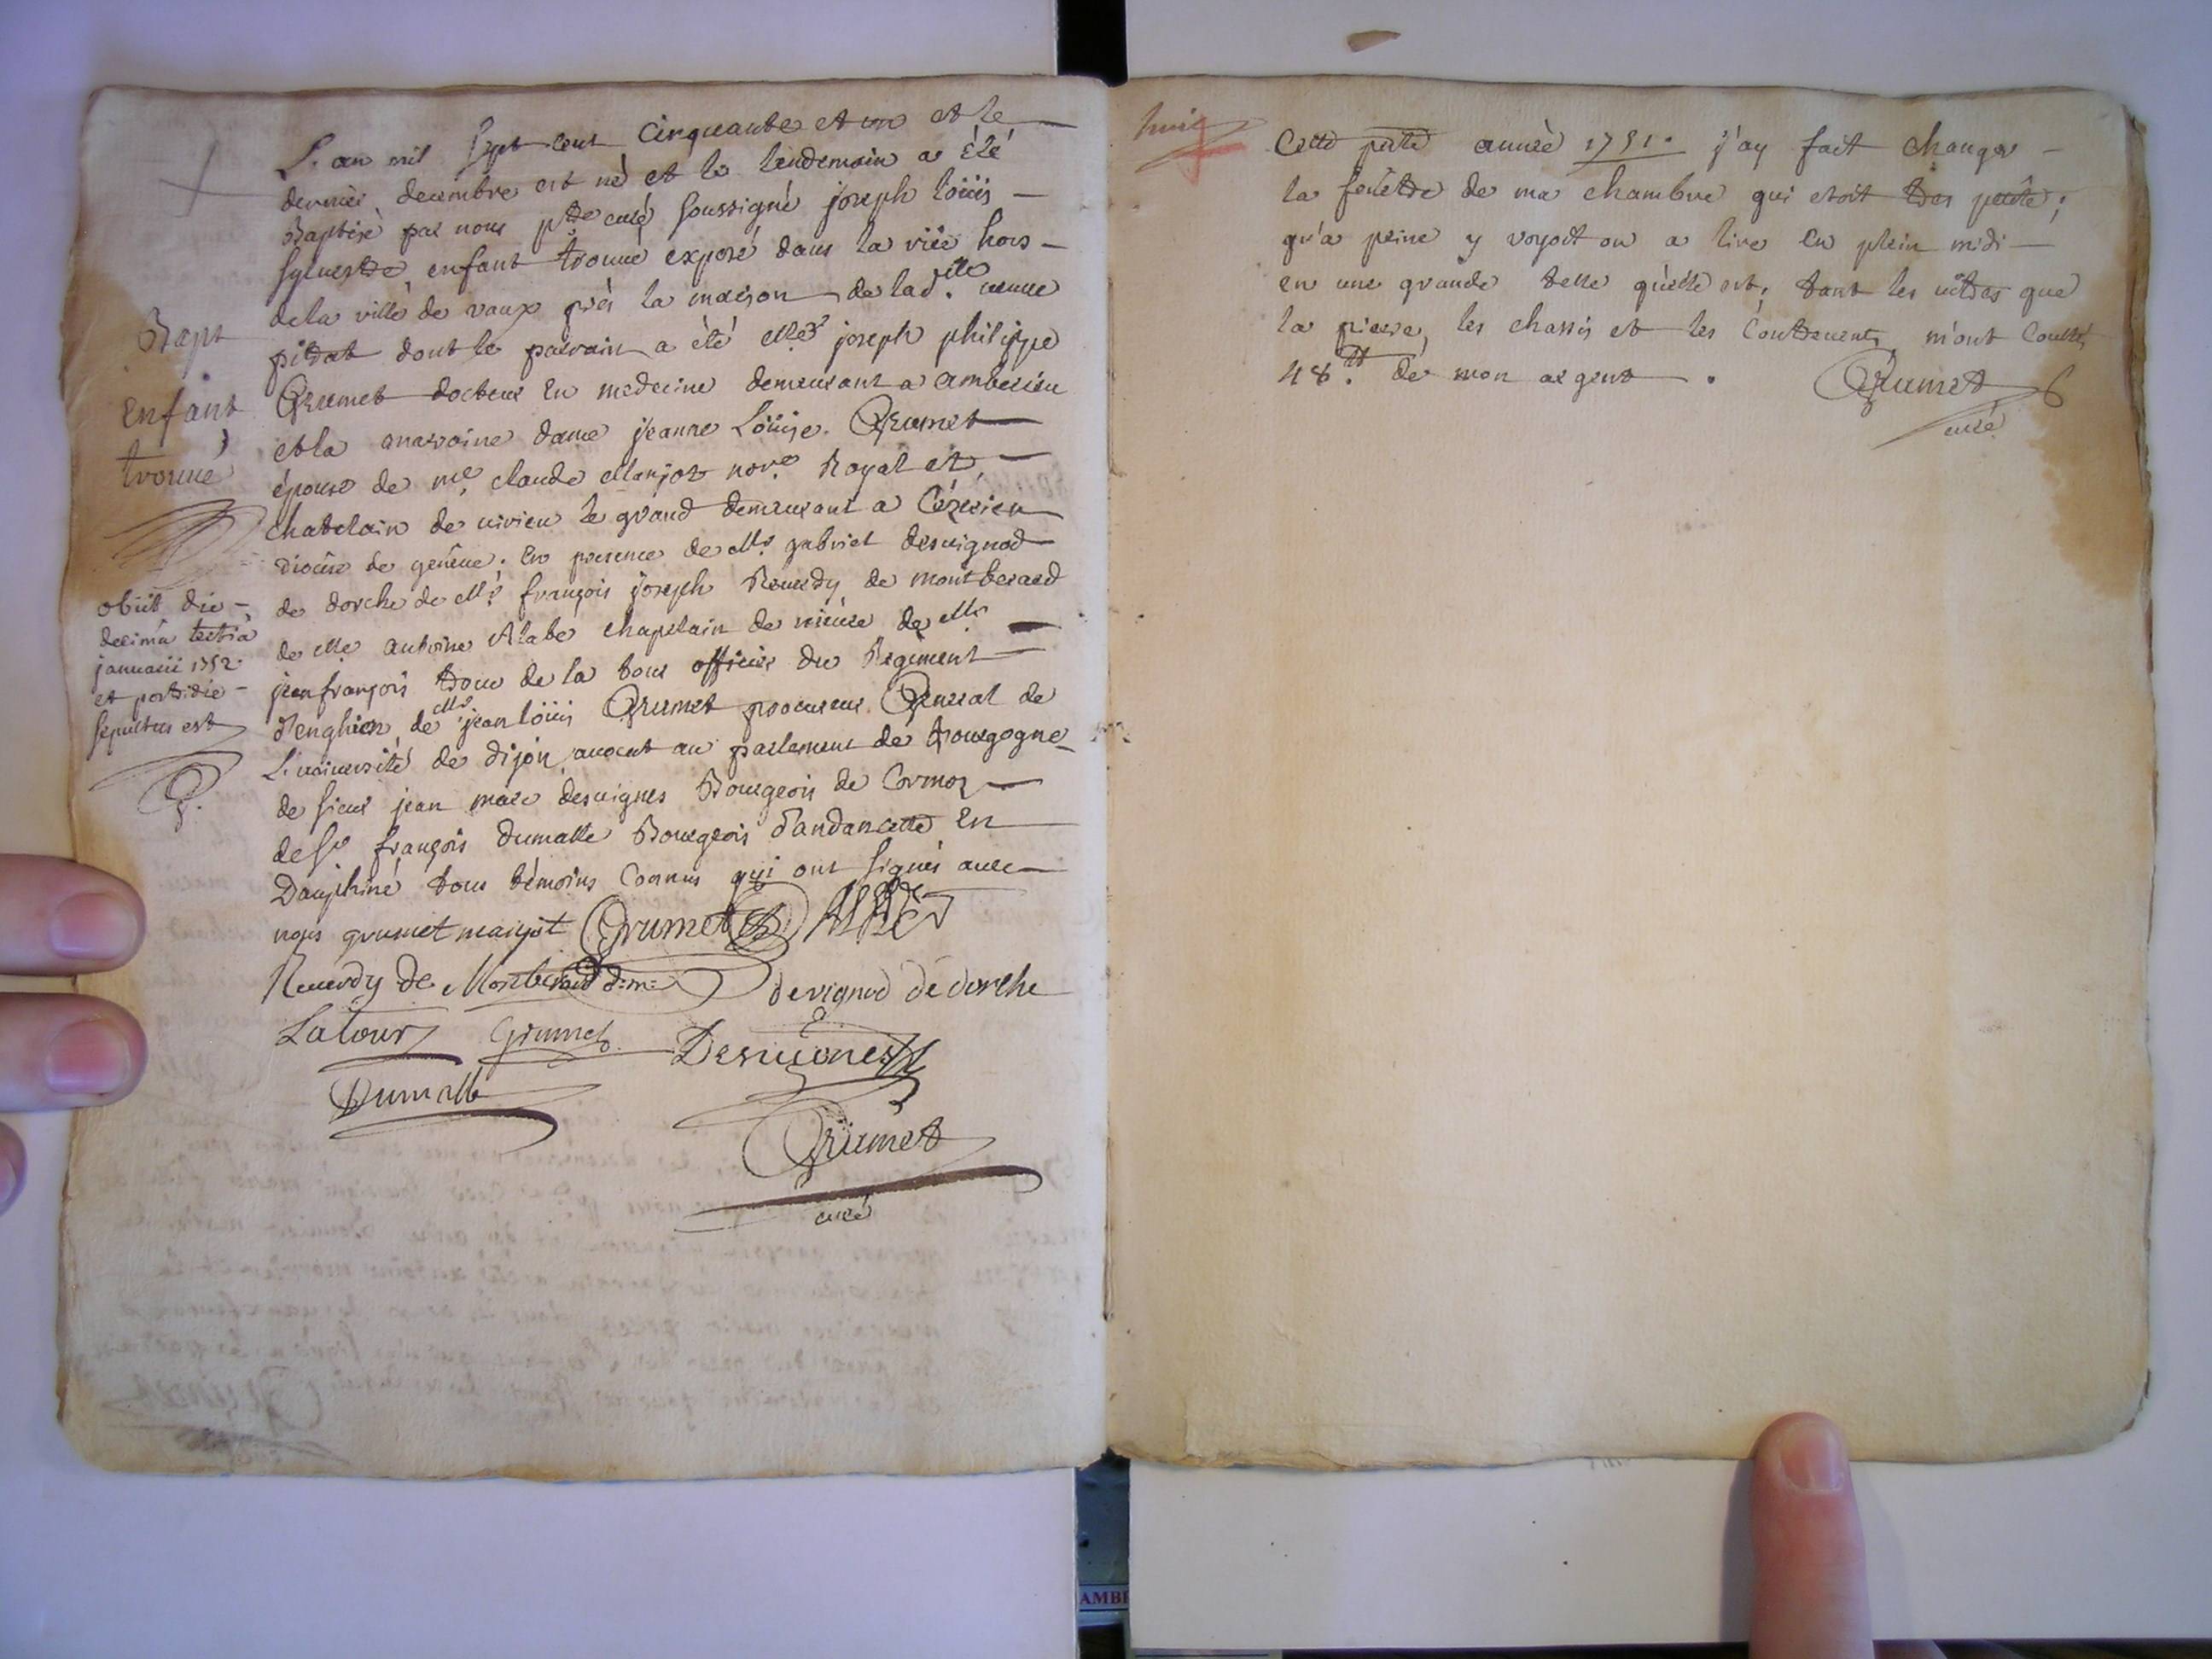 L'an mil sept cent cinquante et un et le
dernier decembre est né et le lendemain a été
Baptisé par nous ptre curé soussigné joseph loüis
sylvestre enfant trouvé exposé dans la vïe hors
dela ville de vaux près la maison de lad.lle veuve
pitrat dont le parrain a été Mre joseph philippe
Grumet docteur en medecine demeurant a amberieu
et la marraine dame jeanne Loüise Grumet
épouse de me claude Marjot nore Royal et
chatelain de virieu le grand demeurant a Cézerieu
diocèse de genève; En presence de Mr gabriel devignod
de dorche de Mr françois joseph Reverdy de montberard
de Mre antoine Alabé chapelain de de Mr
jeanfrançois trou de la tour officier du Regiment
d'enghien, de Mr jean loüis Grumet procureur General de
L'université de dijon avocat au parlement de bourgogne
de sieur jean marc desvignes Bourgeois de Cormoz
de sr françois dumalle Bourgeois d'andancette En
Dauphiné tous témoins connus qui ont signés avec
nous grumet marjot Grumet
Reuerdy de Montberard d:m: devignod de dorche
Latour Grumet Desvignes
Dumalle
Grumet
curé
Bapt
Enfant
trouvé
obiit die
decimâ tertiâ
januarii 1752
et postridie
sepultus est
G.
huit
Cette petite année 1751. j'ay fait changer
la fenêtre de ma chambre qui etoit tres petite;
qu'a peine y voyoit on a lire en plein midi
en une grande telle qu'elle est, tant les vitres que
la pierre, les chassis et les contrevents m'ont coutés
48.tt de mon argent. Grumet
curé
AMBE